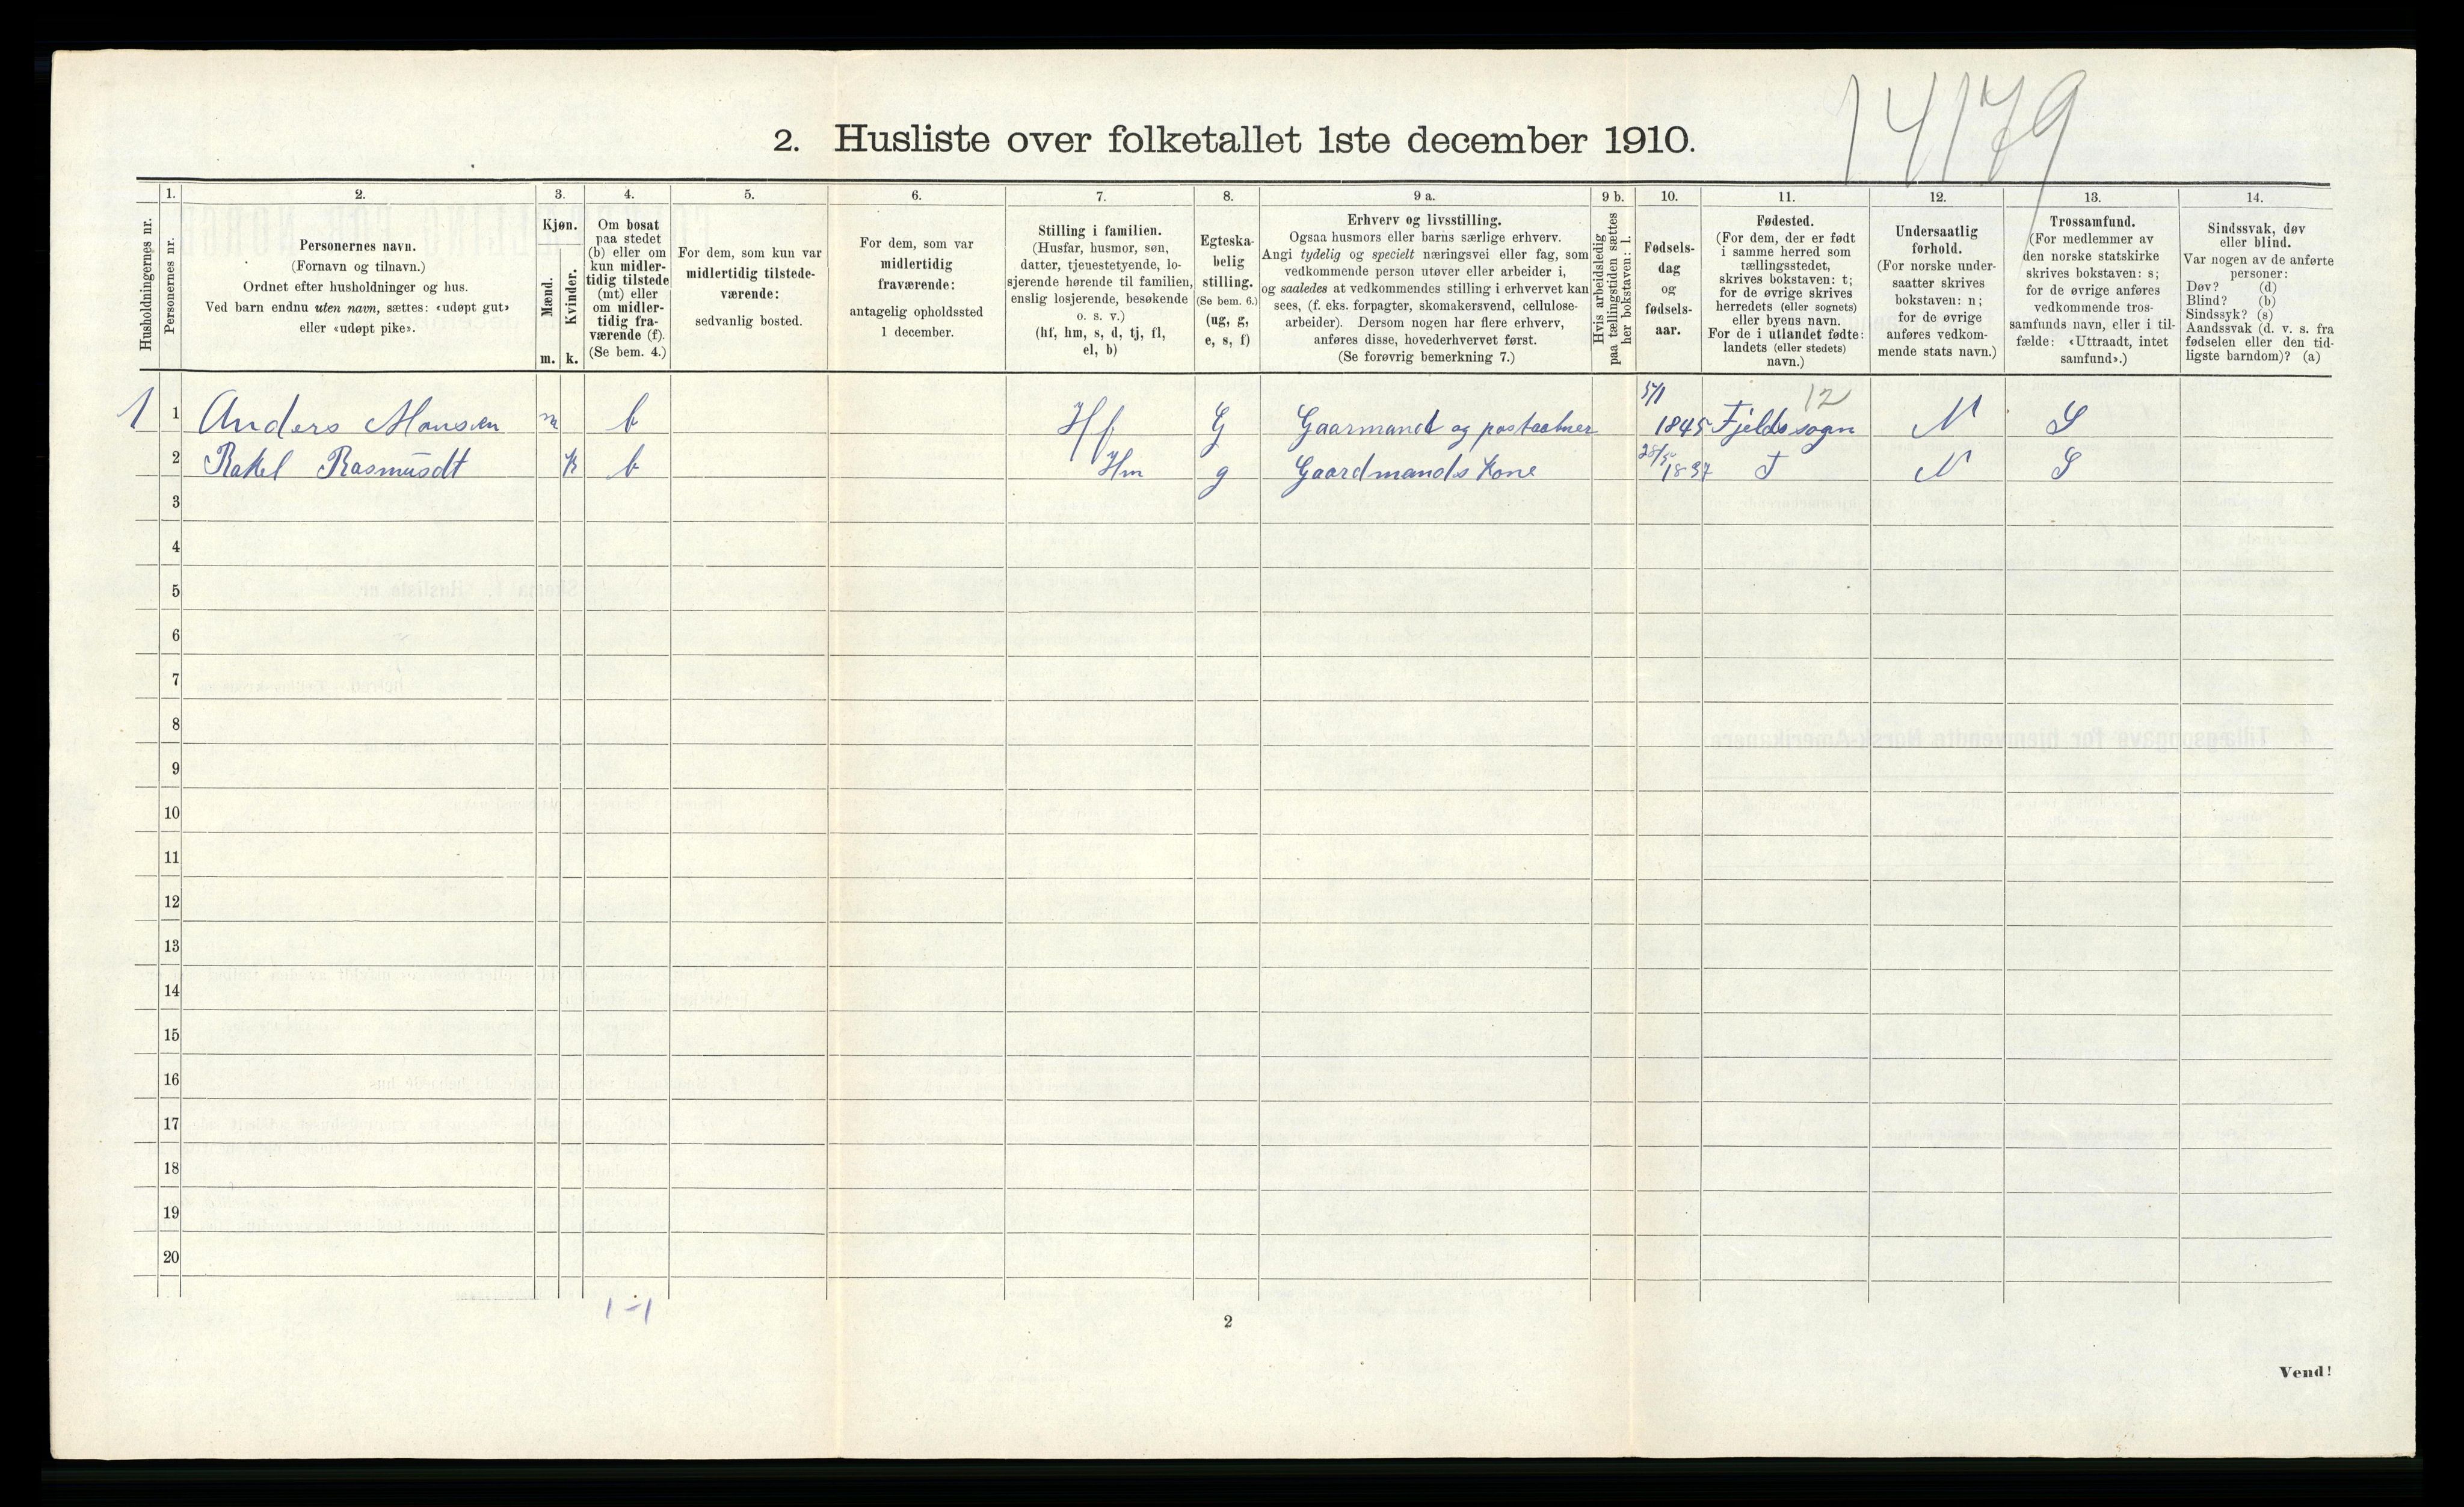 14179
2. Husliste over folketallet 1ste december 1910.
Husholdningernes nr.
1.
Personernes nr.
2.
Personernes navn.
(Fornavn og tilnavn.)
Ordnet efter husholdninger og hus.
Ved barn endnu uten navn, sættes: «udøpt gut»
eller «udøpt pike».
3.
Kjøn.
Mænd.
Kvinder.
m.
k.
4.
Om bosat
paa stedet
(b) eller om
kun midler-
tidig tilstede
(mt) eller
om midler-
tidig fra-
værende (f).
(Se bem. 4.)
5.
For dem, som kun var
midlertidig tilstede-
værende:
sedvanlig bosted.
6.
For dem, som var
midlertidig
fraværende:
antagelig opholdssted
1 december.
7.
Stilling i familien.
(Husfar, husmor, søn,
datter, tjenestetyende, lo-
sjerende hørende til familien,
enslig losjerende, besøkende
o. s. v.)
(hf, hm, s, d, tj, fl,
el, b)
8.
Egteska-
belig
stilling.
(Se bem. 6.)
(ug, g,
e, s, f)
9 a.
Erhverv og livsstilling.
Ogsaa husmors eller barns særlige erhverv.
Angi tydelig og specielt næringsvei eller fag, som
vedkommende person utøver eller arbeider i,
og saaledes at vedkommendes stilling i erhvervet kan
sees, (f. eks. forpagter, skomakersvend, cellulose-
arbeider). Dersom nogen har flere erhverv,
anføres disse, hovederhvervet først.
(Se forøvrig bemerkning 7.)
9 b.
Hvis arbeidsledig
paa tællingstiden sættes
her bokstaven: l.
10.
Fødsels-
dag
og
fødsels-
aar.
11.
Fødested.
(For dem, der er født
i samme herred som
tællingsstedet,
skrives bokstaven: t;
for de øvrige skrives
herredets (eller sognets)
eller byens navn.
For de i utlandet fødte:
landets (eller stedets)
navn.)
12.
Undersaatlig
forhold.
(For norske under-
saatter skrives
bokstaven: n;
for de øvrige
anføres vedkom-
mende stats navn.)
13.
Trossamfund.
(For medlemmer av
den norske statskirke
skrives bokstaven: s;
for de øvrige anføres
vedkommende tros-
samfunds navn, eller i til-
fælde: «Uttraadt, intet
samfund».)
14.
Sindssvak, døv
eller blind.
Var nogen av de anførte
personer:
Døv? (d)
Blind? (b)
Sindssyk? (s)
Aandssvak (d. v. s. fra
fødselen eller den tid-
ligste barndom)? (a)
1 1 Anders Monsen m b Hf G Gaarmand og postaabner 5/1 1845 Fjelds sogn 12 N S
2 Rakel Rasmusdt K b Hm g Gaardmands Kone 28/5 1837 T N S
3
4
5
6
7
8
9
10
11
12
13
14
15
16
17
18
19
20
1-1
2
Vend!